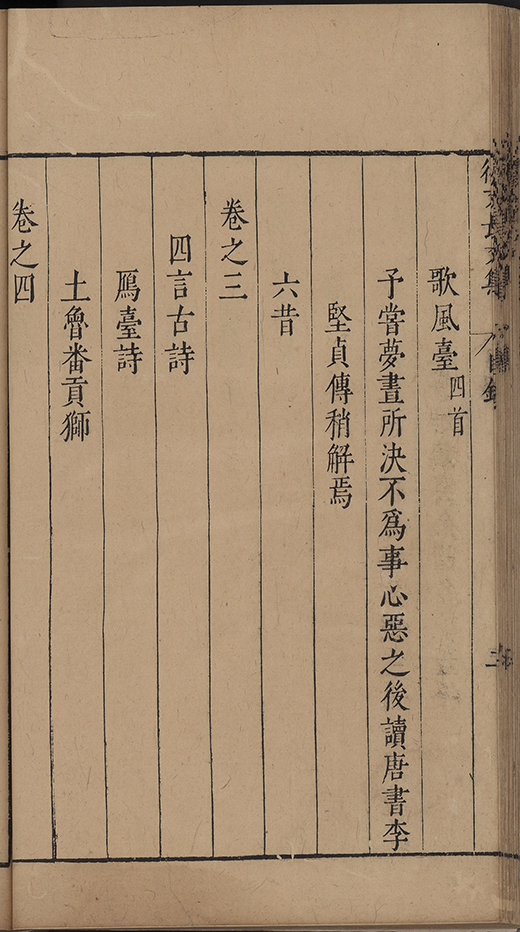 徐文長文集
目錄
二
歌風臺四首
予嘗夢晝所決不爲事心惡之後讀唐書李
堅貞傳稍解焉
六昔
卷之三
四言古詩
鴈臺詩
土魯番貢獅
卷之四